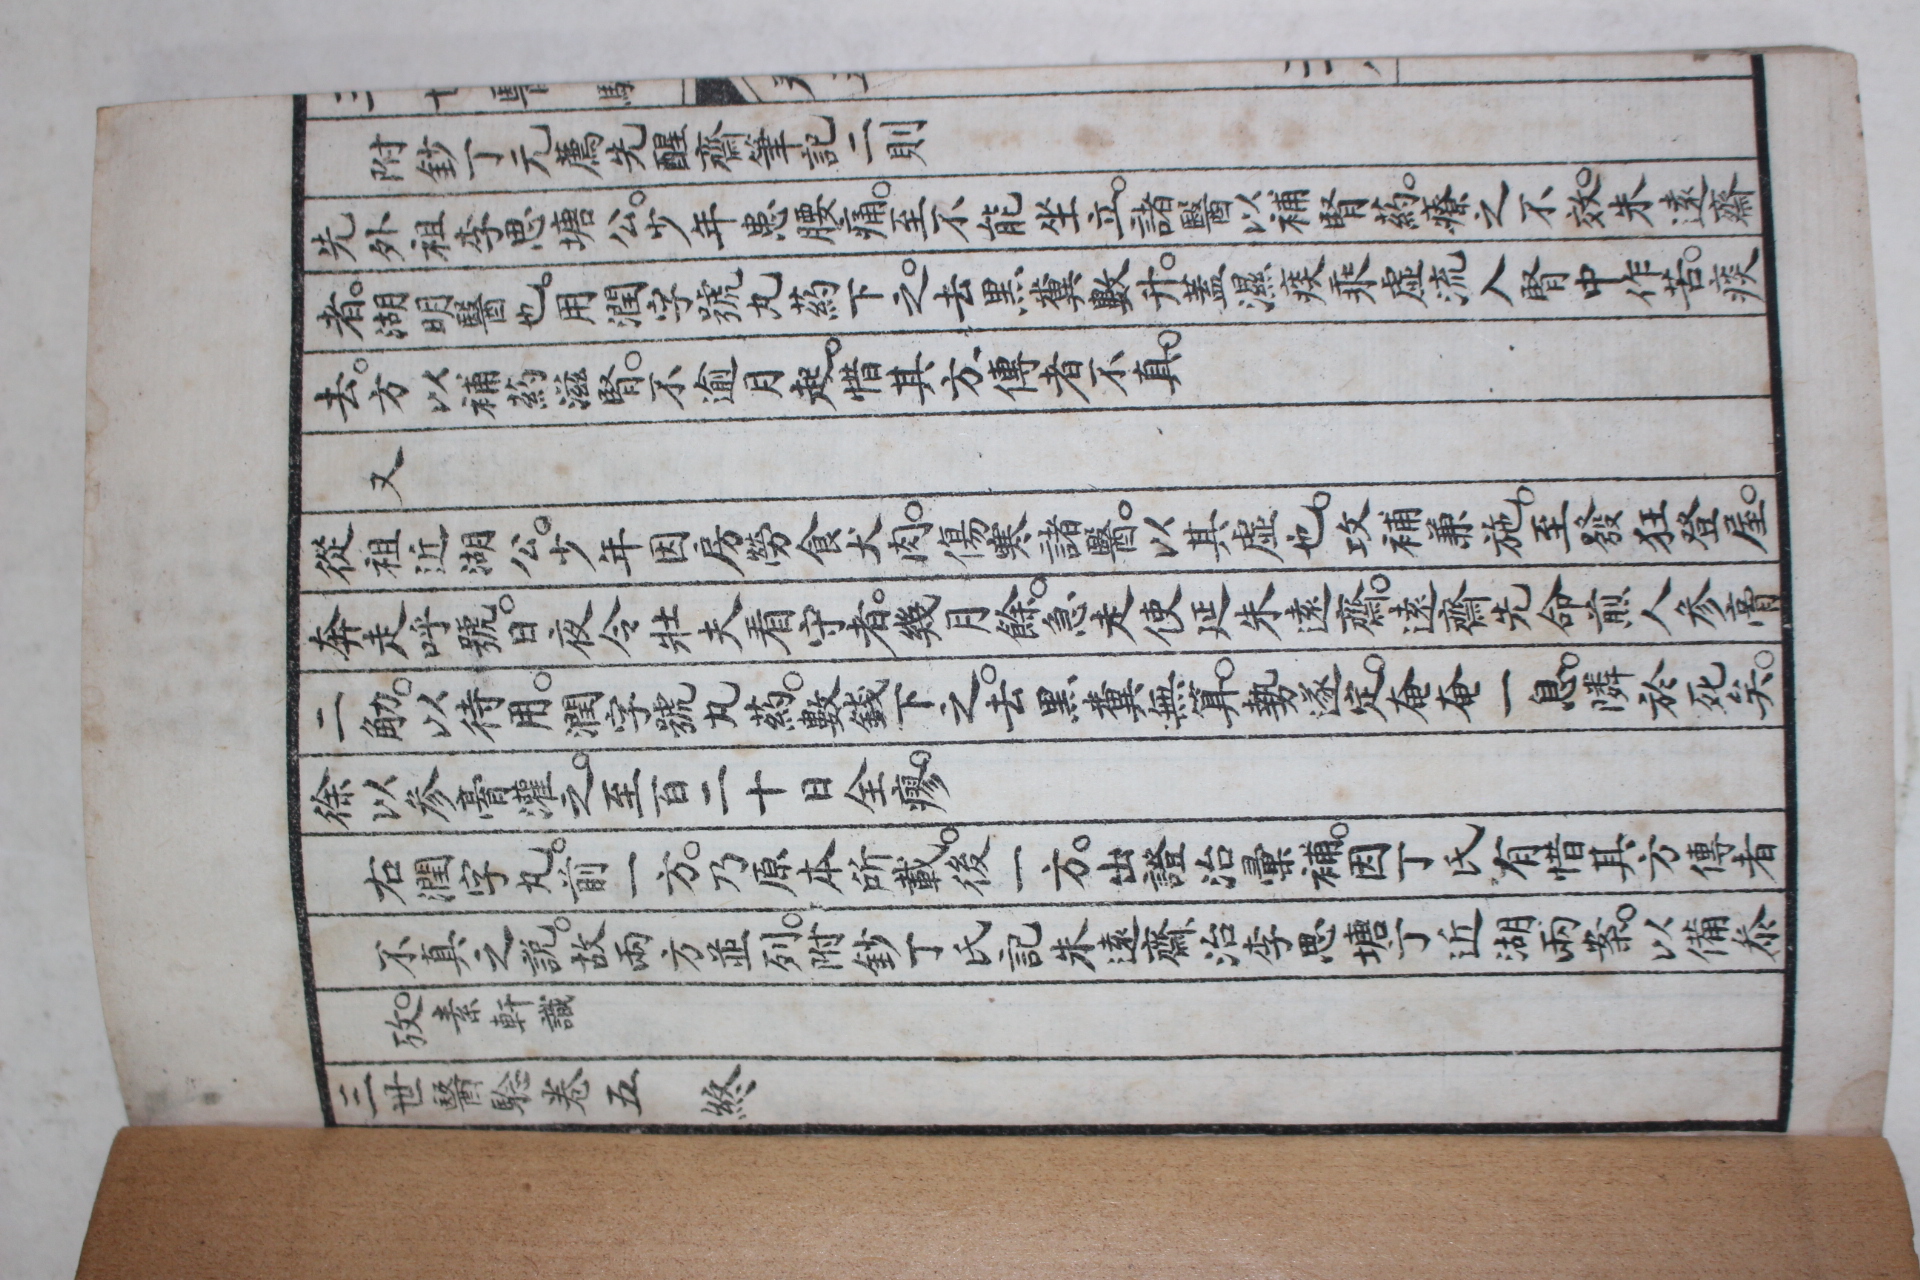 附鈔丁元薦先醒齋筆記二則
先外祖李思塘公。少年患腰痛。至不能坐立。諸醫以補腎药。療之不效。朱遠齋
者。湖明醫也。用潤字號丸药下之。去黑糞數升。蓋濕痰乘虛流入腎中作苦。痰
去。方以補药滋腎。不逾月起。惜其方傳者不真。
又
從祖近湖公。少年因房勞食犬肉。傷寒諸醫。以其虛也。攻補兼施。至發狂登屋。
奔走呼號。日夜令壯夫看守者。幾月餘。急走使延朱遠齋。遠齋先命煎人参膏
二觔。以待用。潤字號丸药。數錢下之。去黑糞無算。勢遂定。奄奄一息。隣於死矣。
徐以参膏灌之。至百二十日全瘳。
右潤字丸。前一方。乃原本所載。後一方。出證治彙補。因丁氏有惜其方傳者
不真之説。故兩方並列。附鈔丁氏記朱遠齋治李思塘丁近湖兩案。以備叅
攷。素軒識
三世醫騐卷五 終